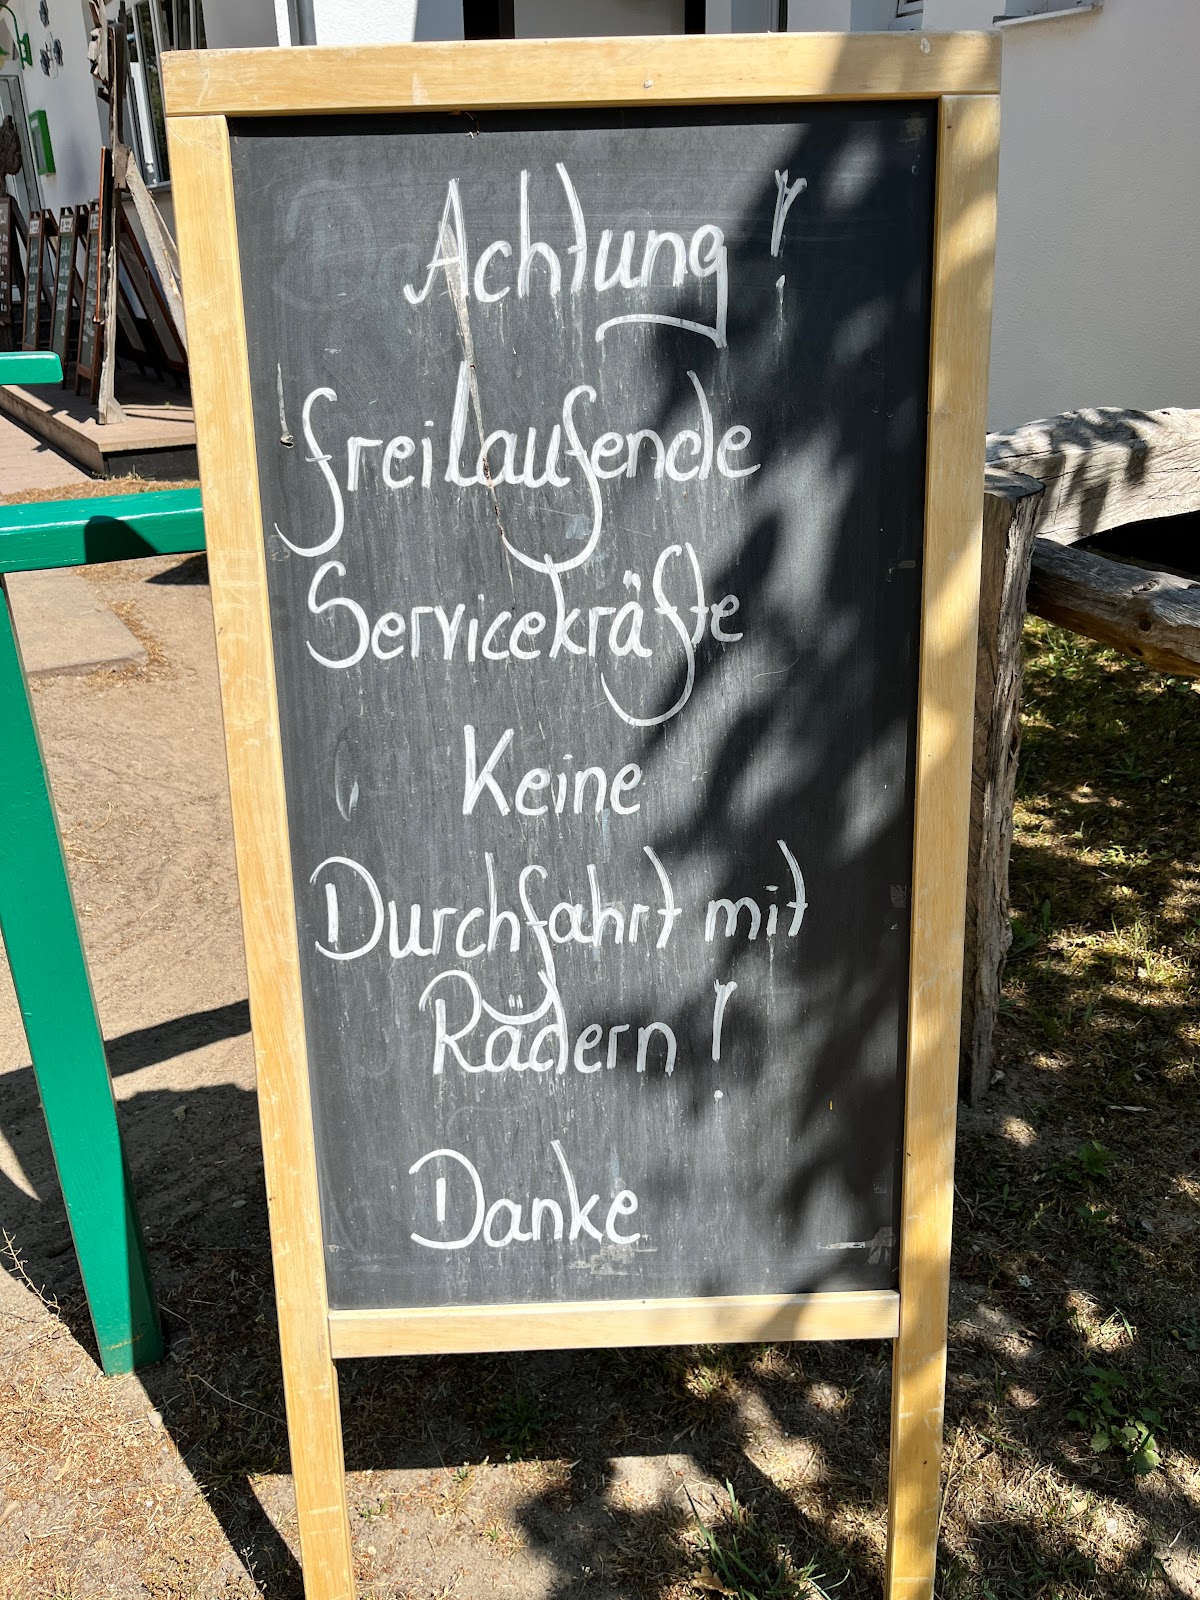 Achtung!
freilaufende
Servicekräfte
Keine
Durchfahrt mit
Rädern!
Danke